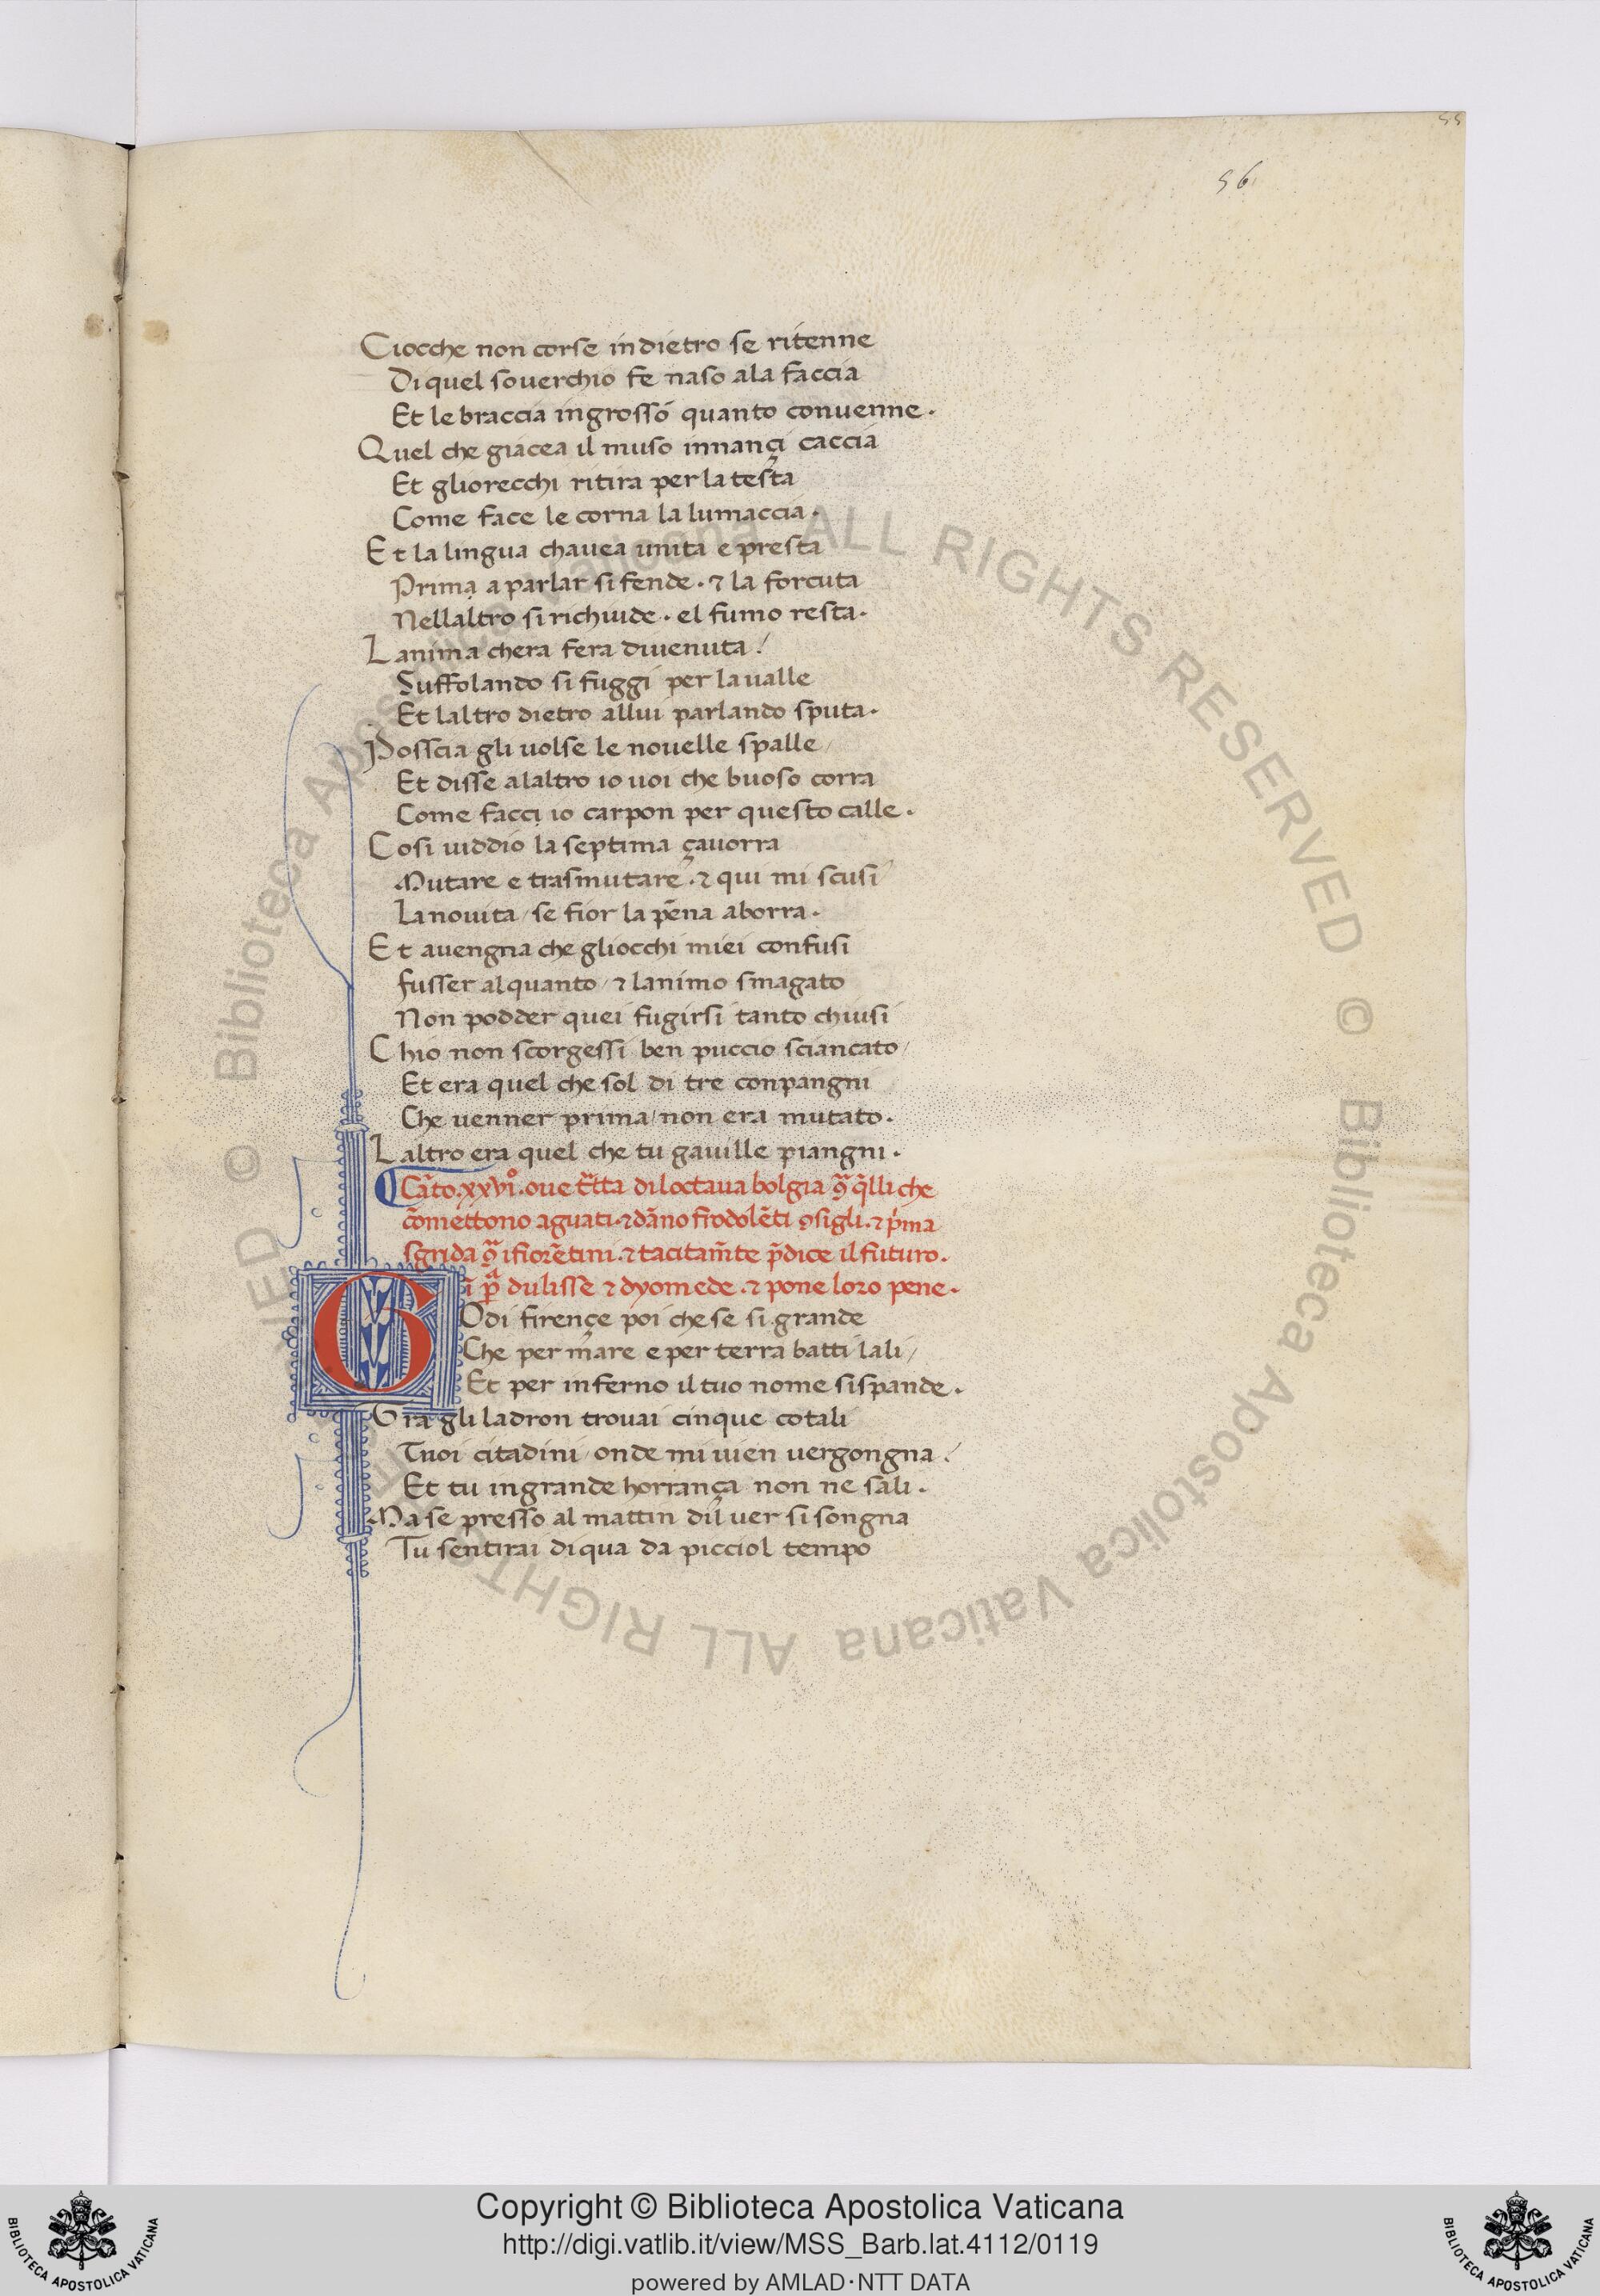 55
56
Ciocche non corse indietro se ritenne
Di quel souerchio fe naso ala faccia
Et le braccia ingrossò quanto conuenne.
Quel che giacea il muso innançi caccia
Et gliorecchi ritira per la testa
Come face le corna la lumaccia.
Et la lingua chauea unita e presta
Prima a parlar si fende. ⁊ la forcuta
Nellaltro si richiude. el fumo resta.
Lanima chera fera diuenuta!
Suffolando si fuggi per la ualle
Et laltro dietro allui parlando sputa.
Posscia gli uolse le nouelle spalle/
Et disse alaltro io uoi che buoso corra
Come facci io carpon per questo calle.
Cosi uiddio la septima çauorra
Mutare e trasmutare. ⁊ qui mi scusi
La nouita/ se fior la pēna aborra.
Et auengna che gliocchi miei confusi
fusser alquanto/ ⁊ lanimo smagato
Non podder quei fugirsi tanto chiusi
Chio non scorgessi ben puccio sciancato/
Et era quel che sol di tre conpangni
Che uenner prima/ non era mutato.
Laltro era quel che tu gauille piangni.
Cāto. xxviº. oue t̄tta diloctaua bolgia ꝯᵃ q̄lli che
cōmettono aguati. ⁊ dāno frodolēti ꝯsigli. ⁊ p̍ma
sgrida ꝯᵃ i fiorētini. ⁊ tacitam̄te p̄dice il futuro.
ī pᵃ dulisse ⁊ dyomede. ⁊ pone loro pene.
GOdi firençe poi che se si grande
Che per mare e per terra batti lali/
Et per inferno il tuo nome sispande.
Tra gli ladron trouai cinque cotali
Tuoi citadini/ onde mi uien uergongna!
Et tu in grande horrança non ne sali.
Ma se presso al mattin dil uer si songna
Tu sentirai di qua da picciol tempo
© Biblioteca Apostolica Vaticana ALL RIGHTS RESERVED
© Biblioteca Apostolica Vaticana ALL RIGHTS RESERVED
Copyright © Biblioteca Apostolica Vaticana
http://digi.vatlib.it/view/MSS_Barb.lat.4112/0119
powered by AMLAD·NTT DATA
BIBLIOTECA APOSTOLICA VATICANA
BIBLIOTECA APOSTOLICA VATICANA